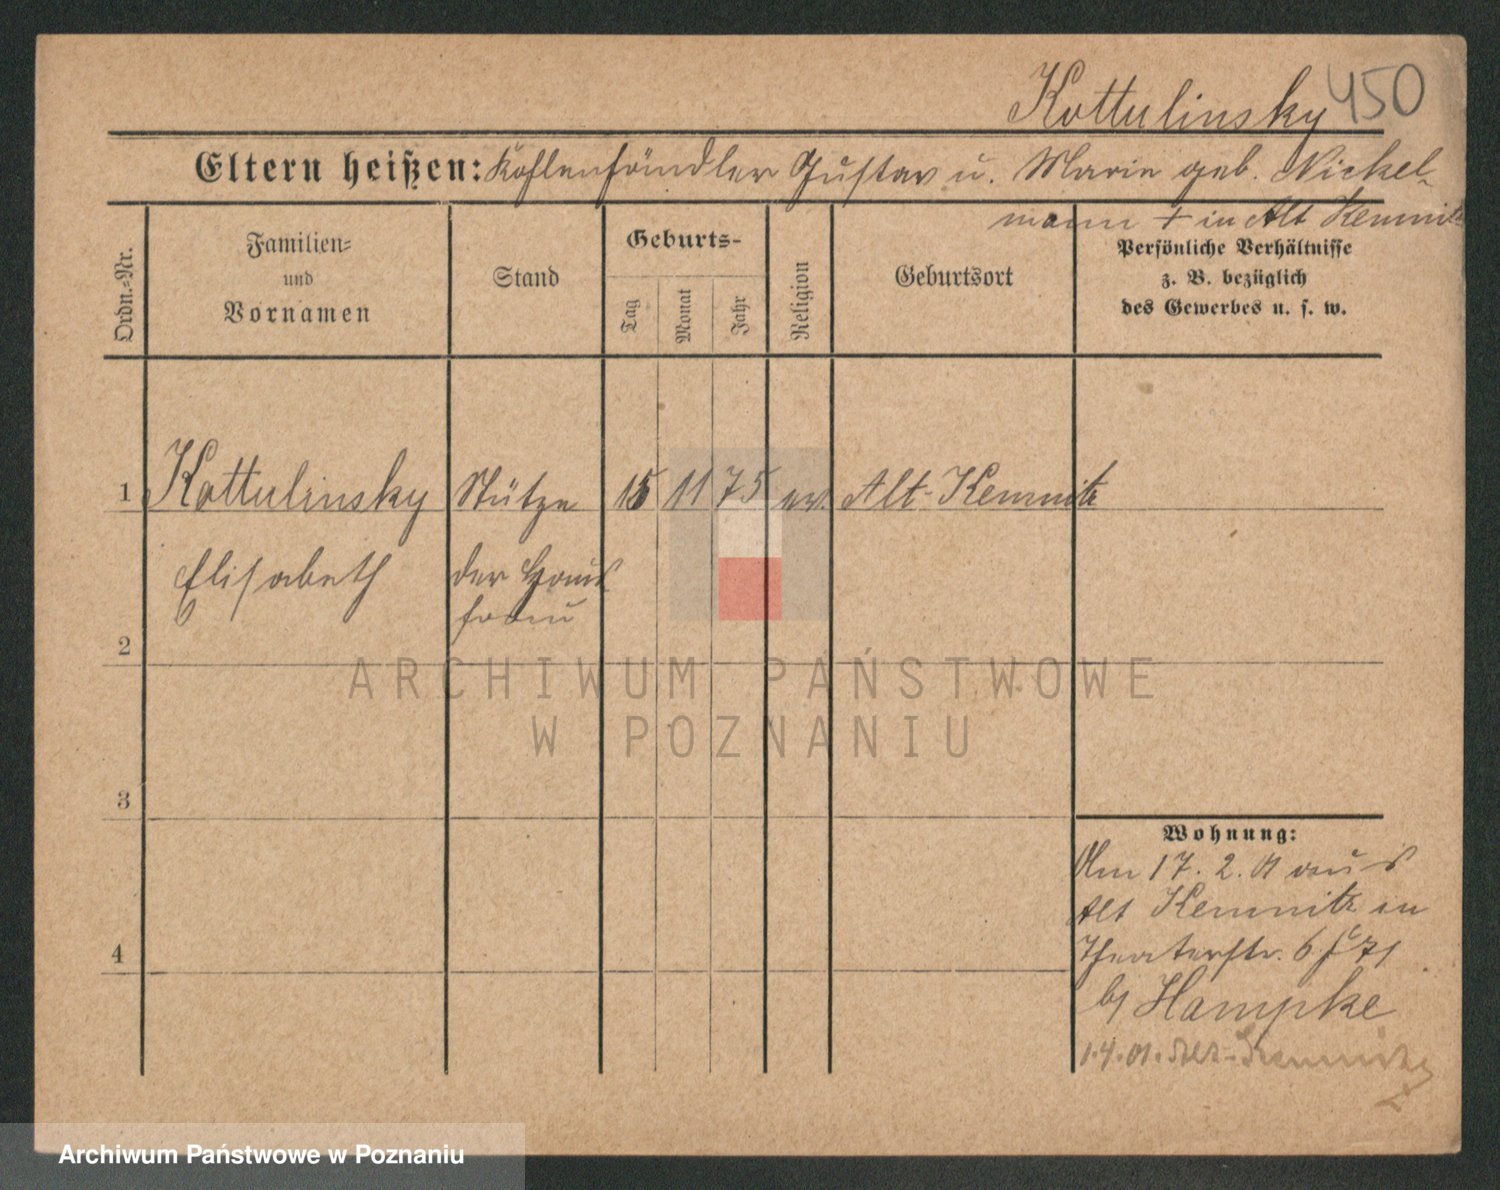 Kottulinsky 450
Eltern heißen: Kohlenhändler Gustav u. Marie geb. Nickel-
mann + in Alt Kemnitz
Ordn.-Nr.
Familien-
und
Vornamen
Stand
Geburts-
Tag
Monat
Jahr
Religion
Geburtsort
Persönliche Verhältnisse
z. B. bezüglich
des Gewerbes u. s. w.
1 Kottulinsky Stütze 15 11 75 ev. Alt-Kemnitz
Elisabeth der Haus
frau
2
ARCHIWUM PAŃSTWOWE
W POZNANIU
3
Wohnung:
Am 17. 2. 01 aus
Alt Kemnitz in
4 Theaterstr. 6
by Hampke
1.4.01. Alt-Kemnitz
Archiwum Państwowe w Poznaniu